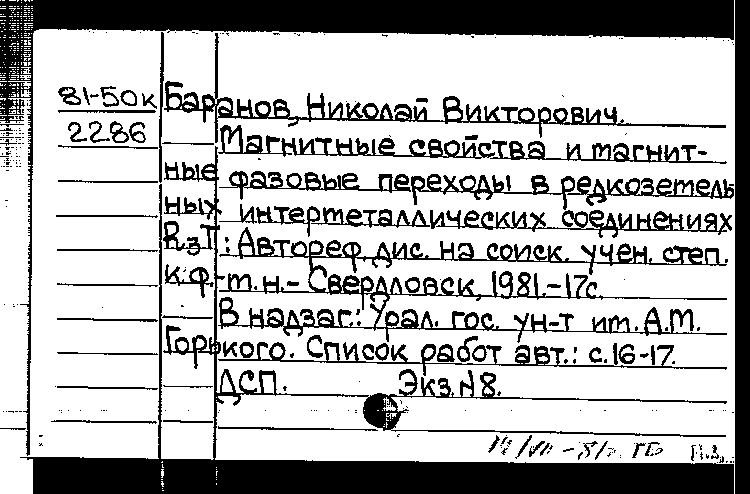 81-50к Баранов, Николай Викторович.
2286 Магнитные свойства и магнит-
ные фазовые переходы в редкоземель
ных интерметаллических соединениях
R₃T: Автореф. дис. на соиск. учен. степ.
к.ф.-т.н.- Свердловск, 1981.-17с.
В надзаг.: Урал. гос. ун-т им. А.М.
Горького. Список работ авт.: с.16-17.
ДСП. Экз.N8.